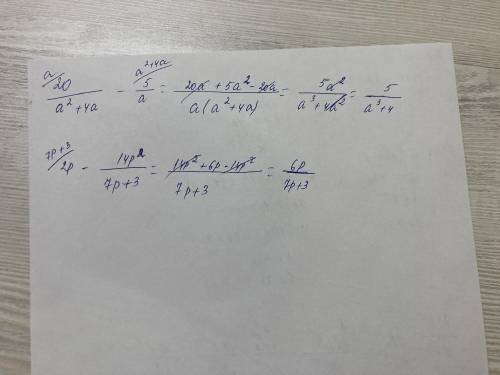 a/ 20/(a²+4a) - a²+4a/ 5/a = (20a + 5a² - 20a)/(a(a²+4a)) = 5a²/(a³+4a²) = 5/(a³+4)
7p+3/ 2p - 14p²/(7p+3) = (14p²+6p-14p²)/(7p+3) = 6p/(7p+3)